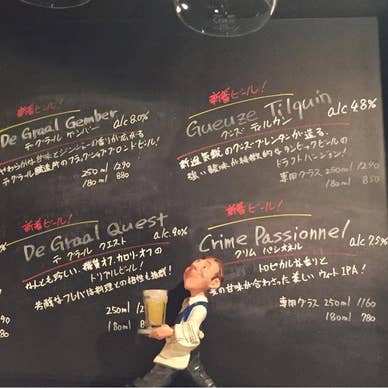 新着ビール!
De Graal Gember
alc 8.0%
デ・グラール ゲンバー
やわらかな甘味とジンジャーの香りが広がる
デ・グラール醸造所のフラッグシップブロンドビール!
250ml 1290
180ml 880
新着ビール!
Gueuze Tilquin
alc 4.8%
グーズ ティルカン
新進気鋭のグーズブレンダーが造る、
強い酸味が特徴的なランビックビールの
ドラフトバージョン!
専用グラス 250ml
180ml 850
新着ビール!
De Graal Quest
alc 9.0%
デ グラール クエスト
糖質オフ、カロリーオフの
トリプルビール!
芳醇なフレバは料理との相性も抜群!
250ml
180ml
新着ビール!
Crime Passionnel
alc 7.5%
クリム パショネル
トロピカルな香りと
の甘味が合わさった美しいウィートIPA!
専用グラス 250ml 1160
180ml 780